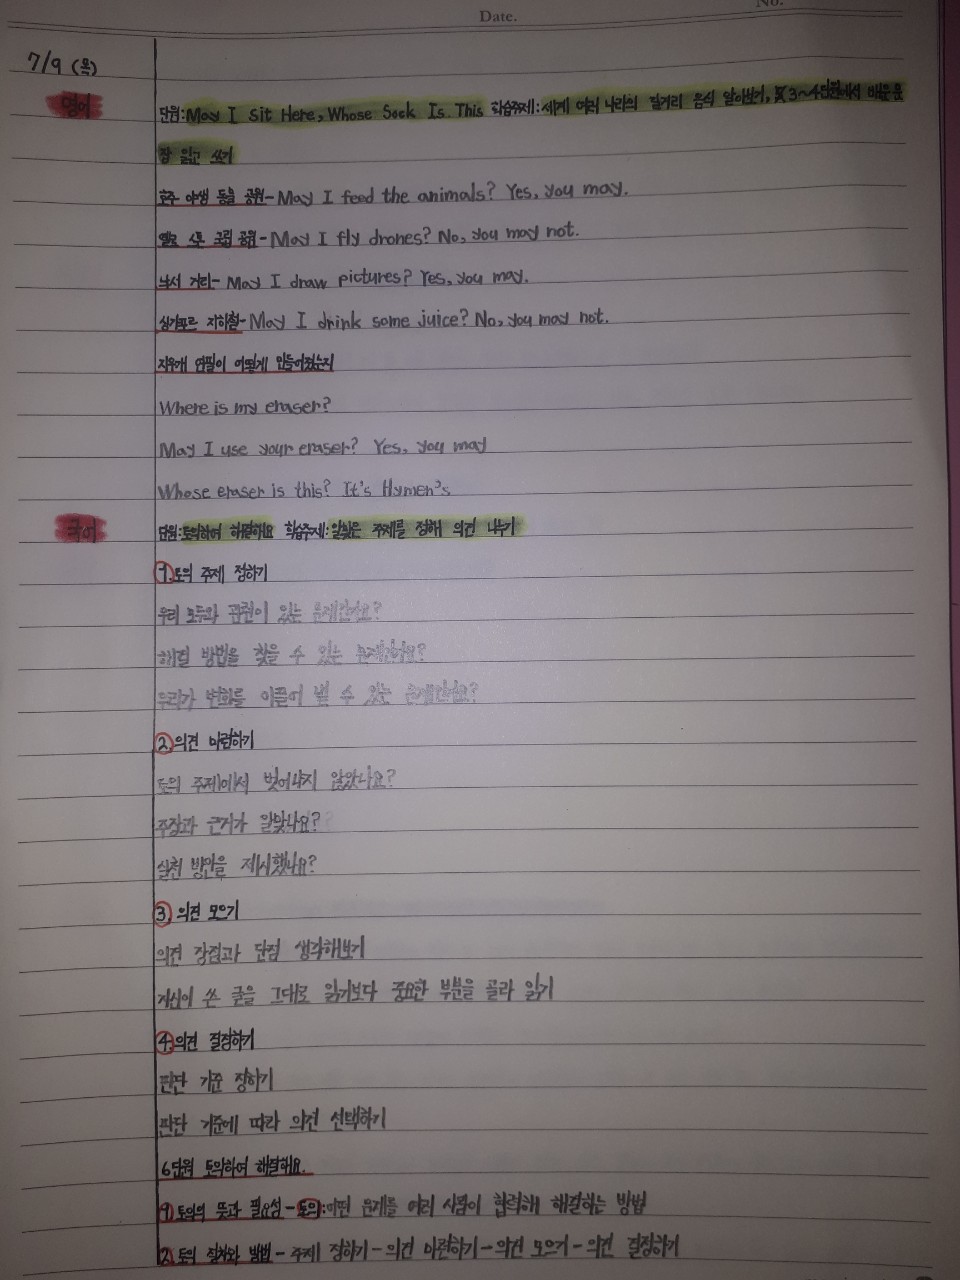 Date.
No.
7/9 (목)
영어
단원: May I Sit Here, Whose Sock Is This 학습주제: 세계 여러 나라의 길거리 음식 알아보기, 3~4단원에서 배운 문
장 읽고 쓰기
호주 야생 동물 공원- May I feed the animals? Yes, you may.
옐로 스톤 국립 공원- May I fly drones? No, you may not.
낙서 거리- May I draw pictures? Yes, you may.
싱가포르 지하철- May I drink some juice? No, you may not.
지우개 연필이 어떻게 만들어졌는지
Where is my eraser?
May I use your eraser? Yes, you may
Whose eraser is this? It's Hymen's
국어
단원: 토의하여 해결해요 학습주제: 알맞은 주제를 정해 의견 나누기
1. 토의 주제 정하기
우리 모두와 관련이 있는 문제인가요?
해결 방법을 찾을 수 있는 문제인가요?
우리가 변화를 이끌어 낼 수 있는 문제인가요?
2. 의견 마련하기
토의 주제에서 벗어나지 않았나요?
주장과 근거가 알맞나요?
실천 방안을 제시했나요?
3. 의견 모으기
의견 장점과 단점 생각해보기
자신이 쓴 글을 그대로 읽기보다 중요한 부분을 골라 읽기
4. 의견 결정하기
판단 기준 정하기
판단 기준에 따라 의견 선택하기
6단원 토의하여 해결해요.
1. 토의의 뜻과 필요성 - 토의: 어떤 문제를 여러 사람이 협력해 해결하는 방법
2. 토의 절차와 방법 - 주제 정하기 - 의견 마련하기 - 의견 모으기 - 의견 결정하기